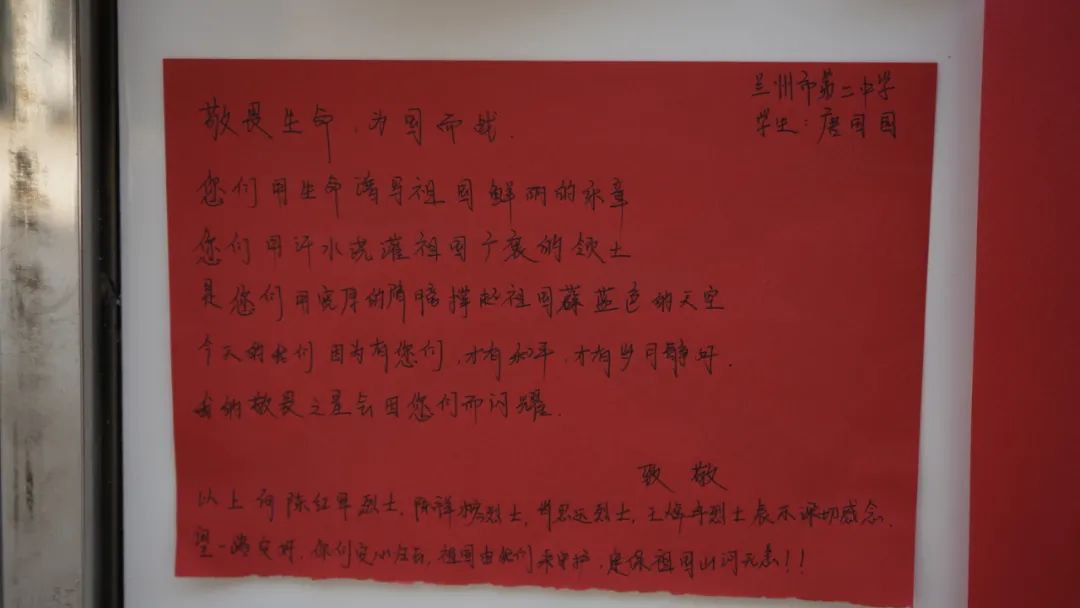 兰州市第二中学
学生：唐国国
敬畏生命，为国而战.
您们用生命谱写祖国鲜丽的乐章
您们用汗水浇灌祖国广袤的领土
是您们用宽厚的臂膀撑起祖国蔚蓝色的天空
今天的我们因为有您们，才有和平，才有岁月静好.
我的敬畏之星会因您们而闪耀.
致敬
以上向陈红军烈士，陈祥榕烈士，肖思远烈士，王焯冉烈士表示深切感念.
望一路走好，你们安心在云，祖国由我们来守护，定保祖国山河无恙！！